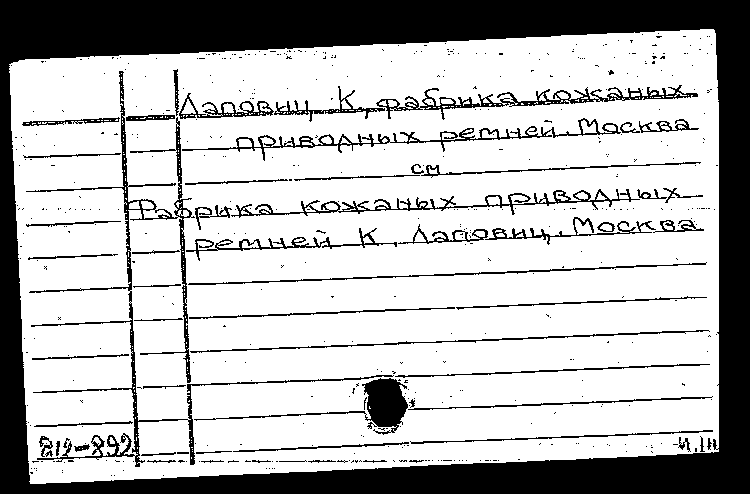 Лаповиц К, фабрика кожаных
приводных ремней. Москва
см.
Фабрика кожаных приводных
ремней К. Лаповиц. Москва
212-892